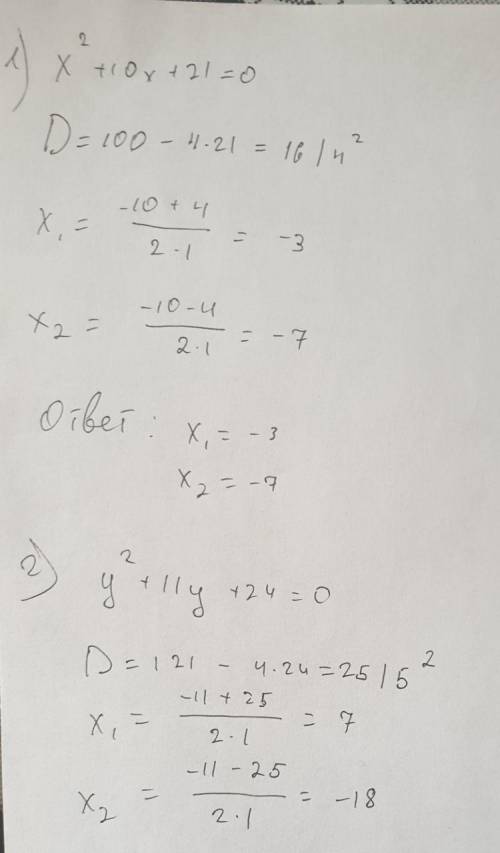 1) x² + 10x + 21 = 0
D = 100 - 4·21 = 16 / 4²
x₁ = (-10 + 4) / (2·1) = -3
x₂ = (-10 - 4) / (2·1) = -7
Ответ: x₁ = -3
x₂ = -7
2) y² + 11y + 24 = 0
D = 121 - 4·24 = 25 / 5²
x₁ = (-11 + 25) / (2·1) = 7
x₂ = (-11 - 25) / (2·1) = -18